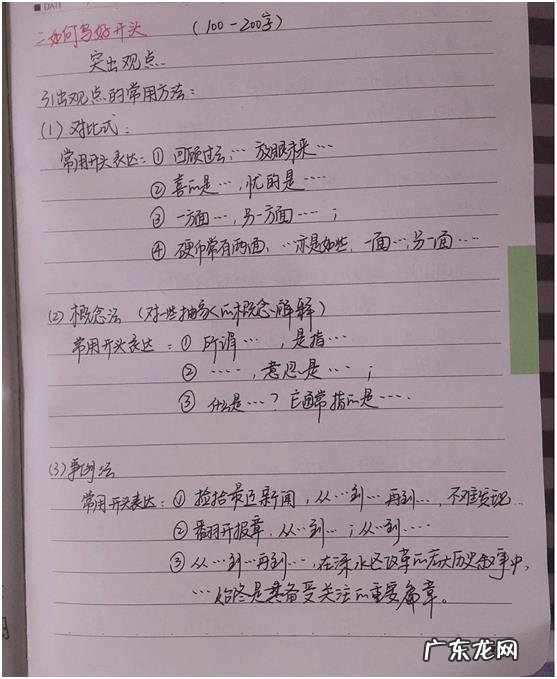 DATE
二如何写好开头 (100-200字)
突出观点
引出观点的常用方法:
(1) 对比式:
常用开头表达:① 回顾过去,… 放眼未来…
② 喜的是…,忧的是……
③ 一方面…,另一方面……;
④ 硬币常有两面,…亦是如此,一面…,另一面……
(2) 概念法 (对一些抽象的概念解释)
常用开头表达:① 所谓…,是指…
② ……,意思是…;
③ 什么是…?它通常指的是……
(3) 事例法
常用开头表达:① 捡拾最近新闻,从…到…再到…,不难发现…
② 翻开报章,从…到…;从…到……
③ 从…到…再到…,在深水区改革的宏大历史叙事中,
…始终是备受关注的重要篇章。
广东龙网